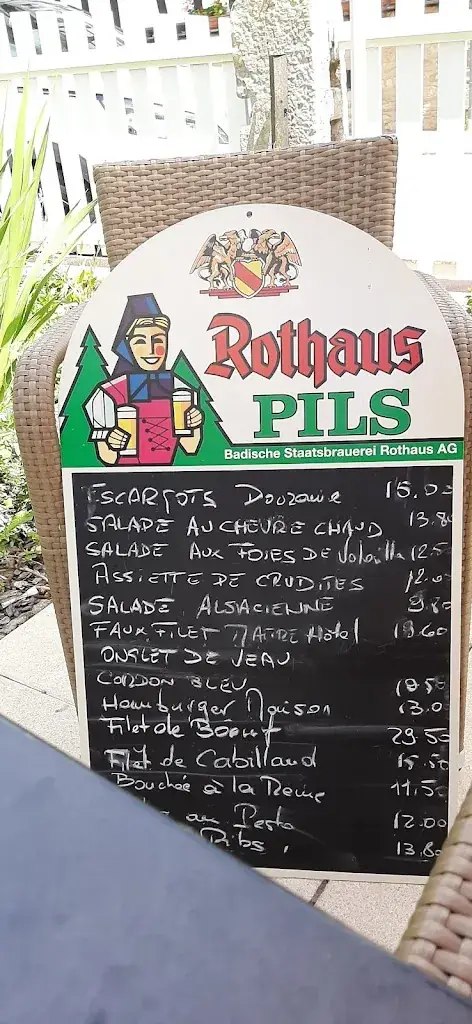 Rothaus
PILS
Badische Staatsbrauerei Rothaus AG
ESCARGOTS Douzaine 15.00
SALADE AU CHEVRE CHAUD 13.80
SALADE AUX FOIES DE Volaille 12.5
ASSIETTE DE CRUDITES 12.00
SALADE ALSACIENNE 9.80
FAUX FILET MAITRE Hôtel 18.60
ONGLET DE VEAU
CORDON BLEU 18.50
Hamburger Maison 13.0
Filet de Boeuf 29.50
Filet de Cabillaud 15.50
Bouchée à la Reine 11,50
au Pesto 12.00
Ribs 13,80